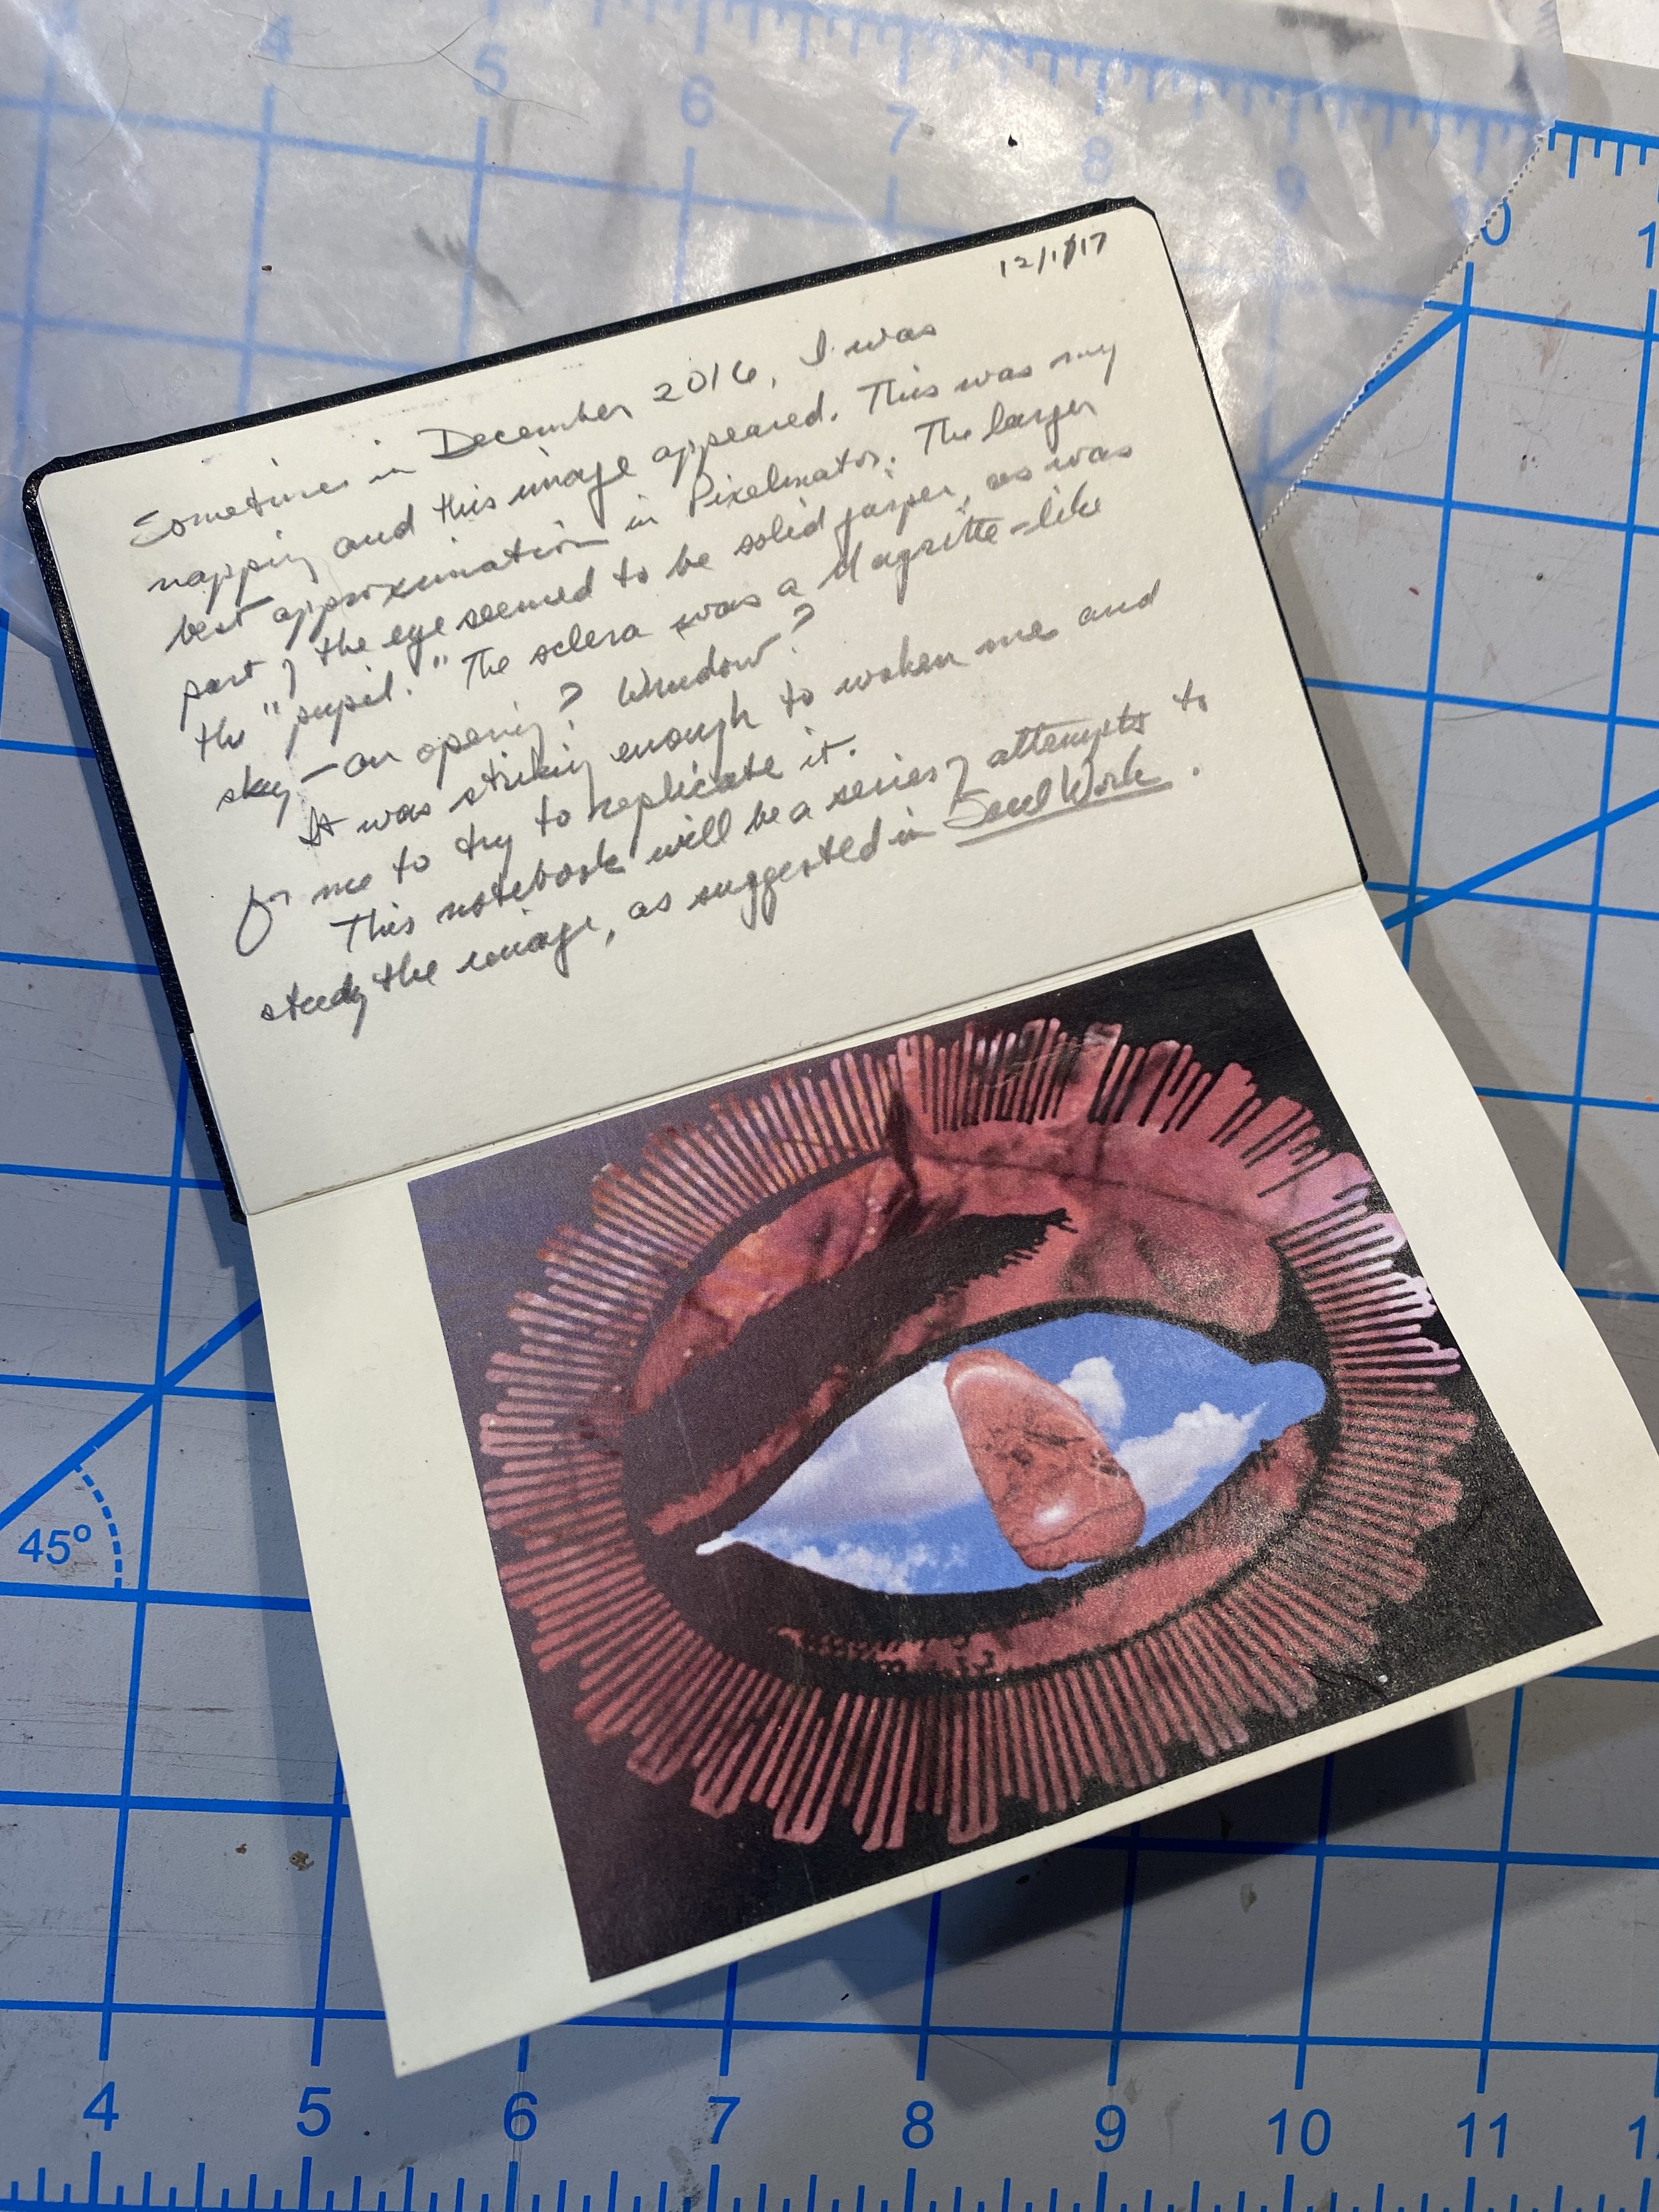 4 5 6 7 8 9
12/1/17
Sometime in December 2016, I was
napping and this image appeared. This was my
best approximation in Pixelmator. The larger
part of the eye seemed to be solid jasper, as was
the "pupil." The sclera was a Magritte-like
sky — an opening? Window?
It was striking enough to waken me and
for me to try to replicate it.
This notebook will be a series of attempts to
study the image, as suggested in Soul Work.
45°
4 5 6 7 8 9 10 11